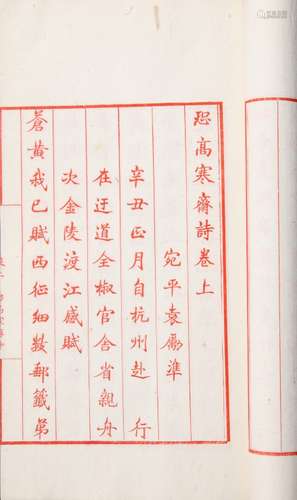 恐高寒齋詩卷上
宛平袁勵準
辛丑正月自杭州赴　行
在迂道全椒官舍省親舟
次金陵渡江感賦
蒼黃我已賦西征細數郵籤第